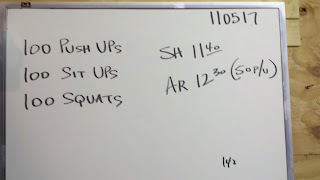 110517
100 PUSH UPS
100 SIT UPS
100 SQUATS
SH 11 40
AR 12 30 (50 P/U)